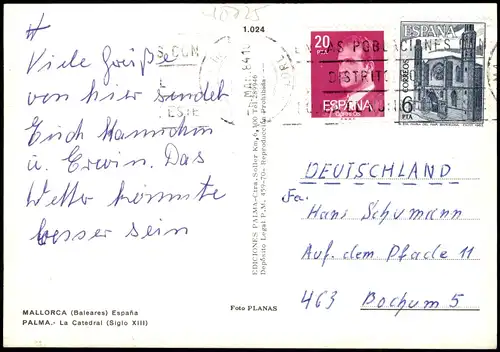 10725
1.024
#
Viele Grüße
von hier sendet
Euch Hannchen
u. Erwin. Das
Wetter könnte
besser sein
MALLORCA (Baleares) España
PALMA.- La Catedral (Siglo XIII)
EDICIONES PALMA-Ctra. Soller Km,
Depósito Legal P.M. 459-70 Reproducción Prohibida
Foto PLANAS
EN LAS POBLACIONES
DISTRITO
20
PTA
ESPAÑA
CORREOS
ESPAÑA
CORREOS
6
PTA
DEUTSCHLAND
Fa.
Hans Schumann
Auf dem Pfade 11
463 Bochum 5